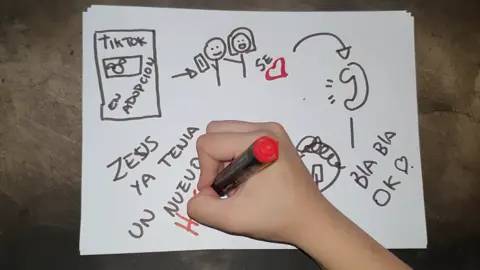 TIKTOK
EN
ADOPCION
SE
BLA BLA
OK
ZEUS
YA TENIA
UN NUEVO
H